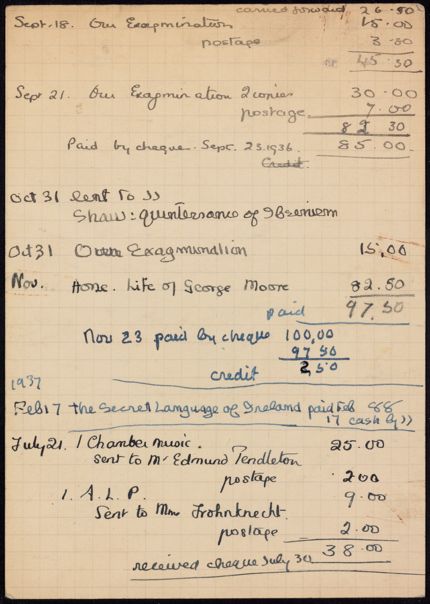 carried forward 26.50
Sept. 18. Our Exagmination 15.00
postage 3.80
45 30
Sept 21. Our Exagmination 2 copies 30.00
postage 7.00
82 30
Paid by cheque. Sept. 23.1936. 85.00.
Credit.
Oct 31 lent to JJ
Shaw: quintersance of Ibsenism
Oct 31 Our Exagmination 15,00
Nov. Hone. Life of George Moore 82.50
paid 97,50
Nov 23 paid by cheque 100,00
97 50
credit 2,50
1937
Feb 17 the Secret Language of Ireland paid Feb 88
17 cash by JJ
July 21. 1 Chamber music. 25.00
sent to Mr Edmund Pendleton
postage 200
1. A.L.P. 9.00
Sent to Mme Frohnknecht.
postage 2.00
38.00
received cheque July 30